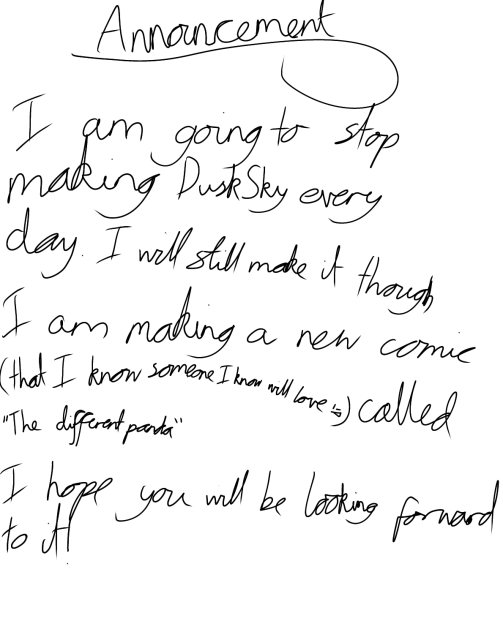 Announcement
I am going to stop
making DuskSky every
day. I will still make it though
I am making a new comic
(that I know someone I know will love :)) called
"The different panda"
I hope you will be looking forward
to it!